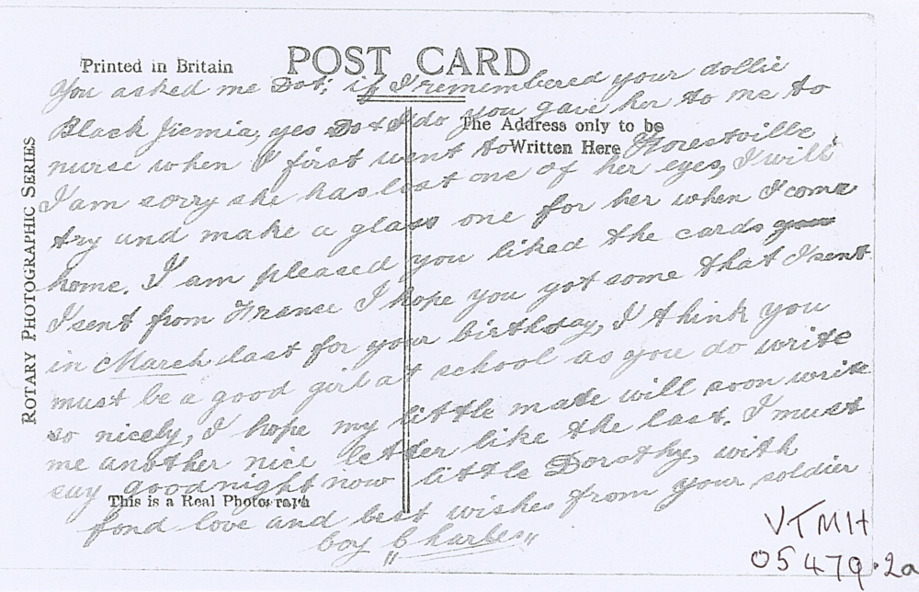 Printed in Britain
POST CARD
You asked me Dot; if I remembered your dollie
Black Jiemia, yes Dot I do you gave her to me to
The Address only to be
Written Here
nurse when I first went to Forestville
I am sorry she has lost one of her eyes, I will
try und make a glass one for her when I come
home. I am pleased you liked the cards
I sent from France I hope you got some that I sent
in March last for your birthday, I think you
must be a good girl at school as you do write
so nicely, I hope my little mate will soon write
me another nice letter like the last. I must
say goodnight now little Dorothy, with
This is a Real Photograph
fond love and best wishes from your soldier
boy "Charles"
ROTARY PHOTOGRAPHIC SERIES
VTMH
05479.2a